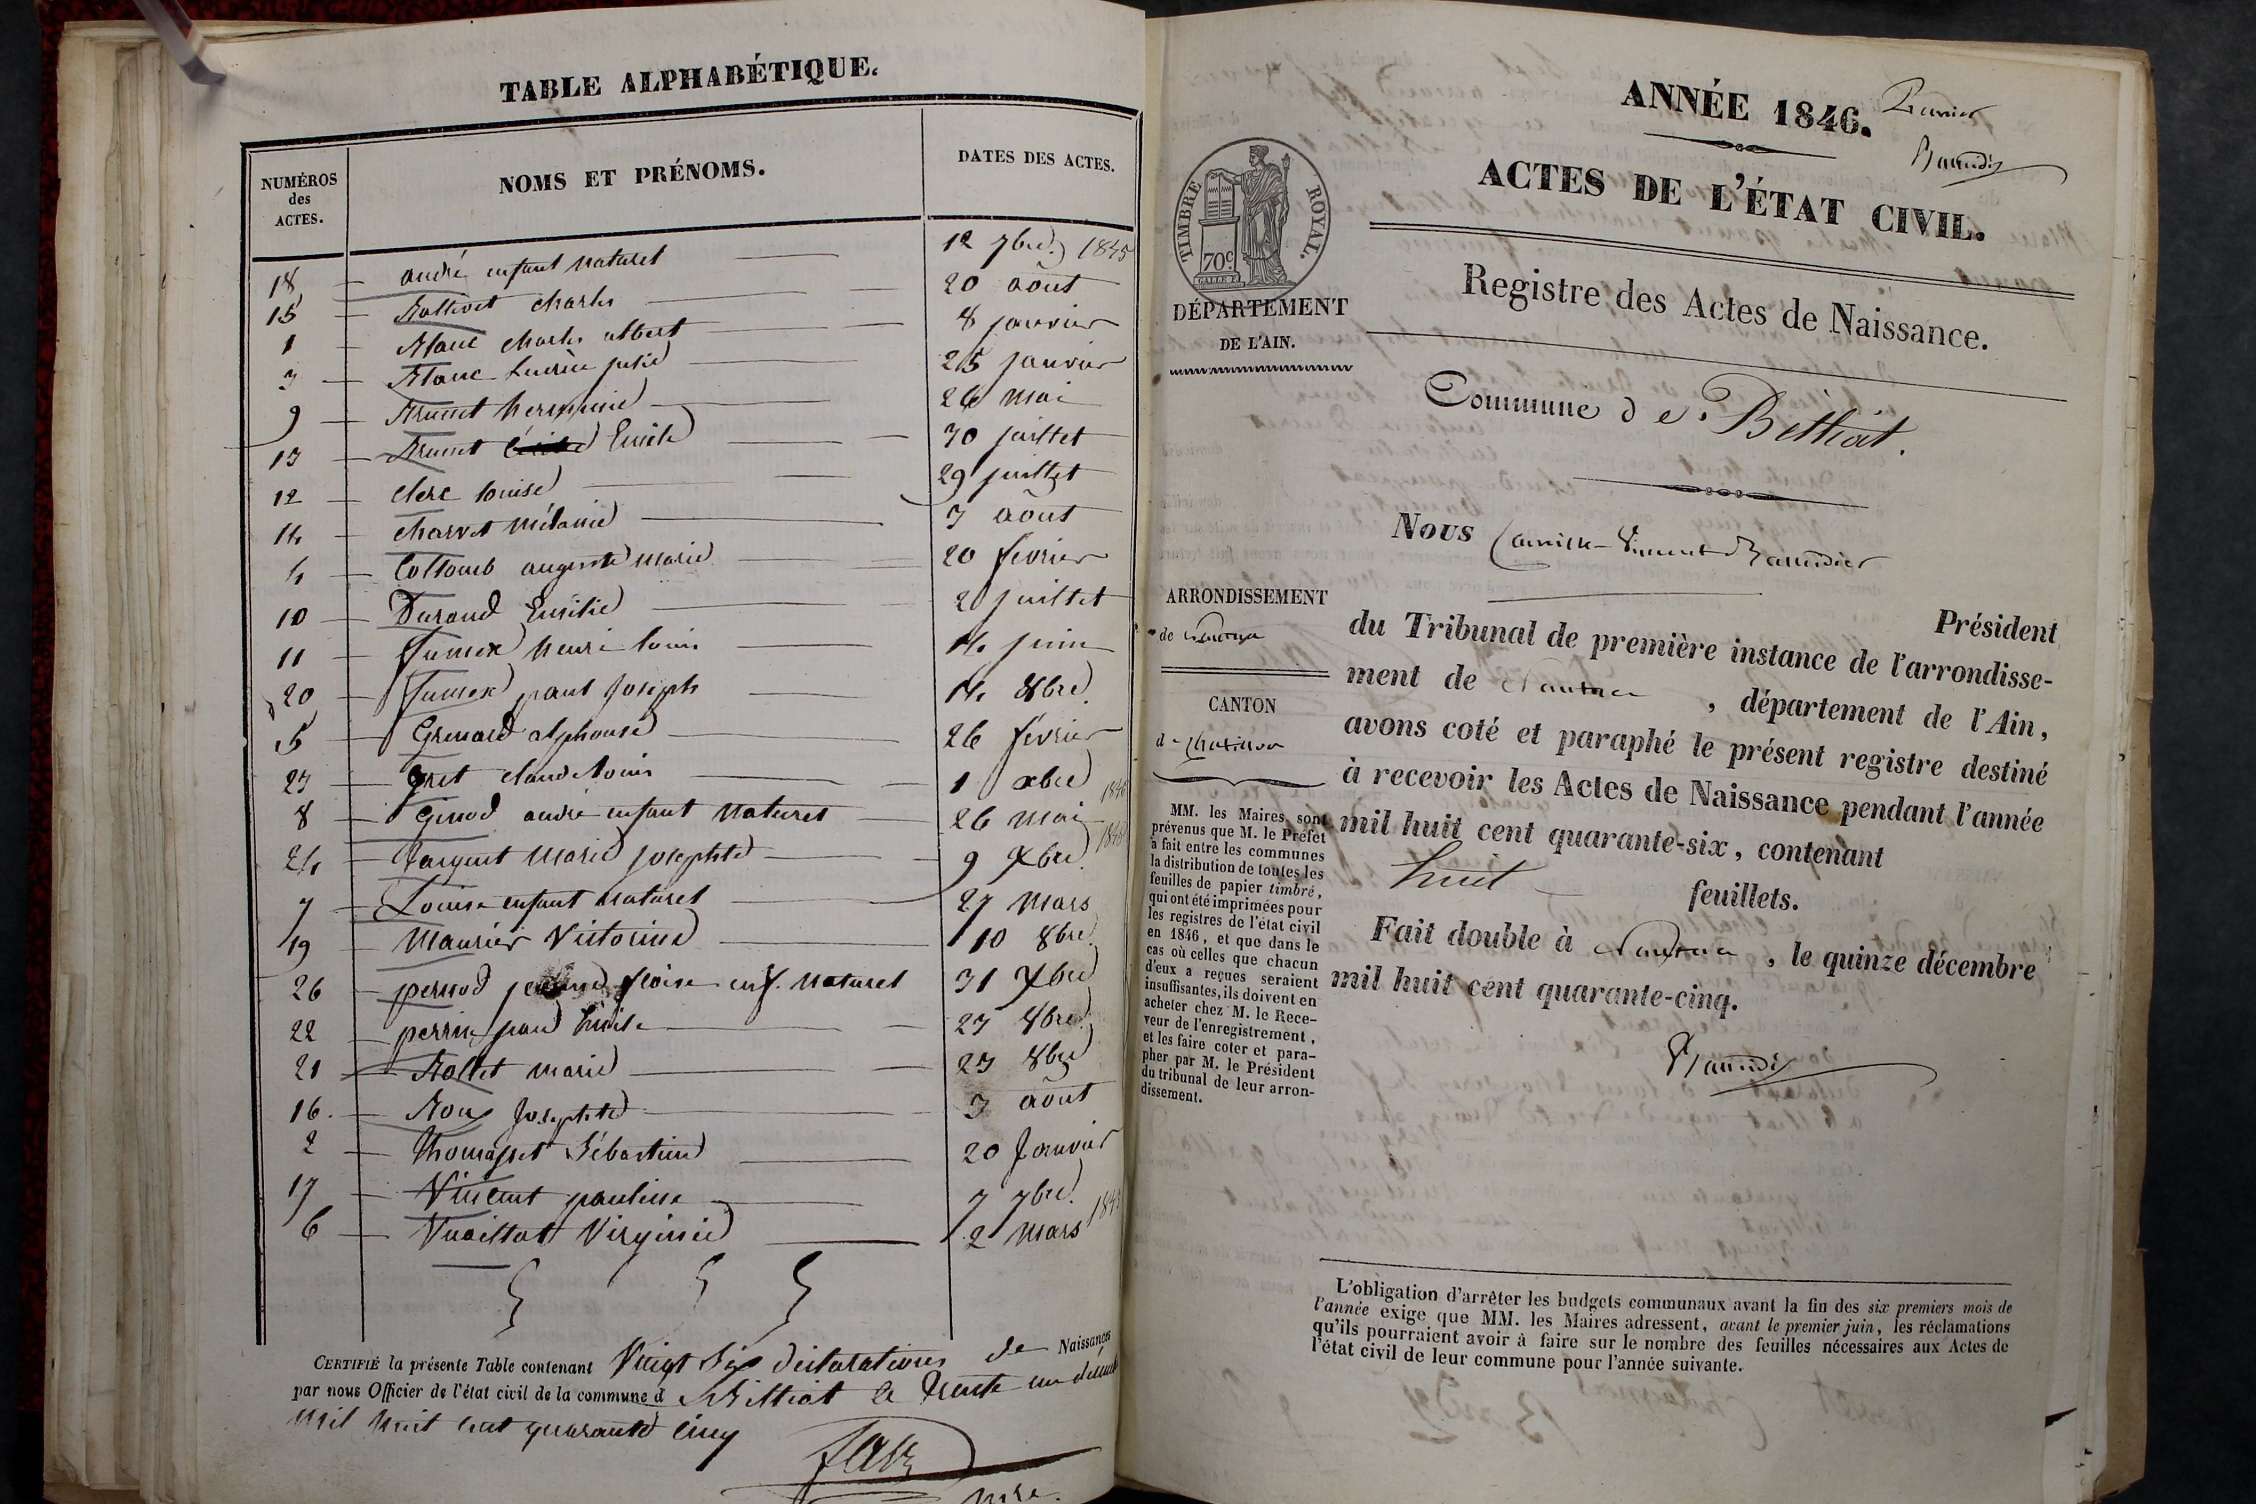 TABLE ALPHABÉTIQUE.
NUMÉROS des ACTES.
NOMS ET PRÉNOMS.
DATES DES ACTES.
18 andré enfant naturel 12 7bre 1845
15 Charles 20 août
1 Blanc charles albert 8 janvier
3 Blanc 25 janvier
9 Brunet herminie 26 mai
13 Brunet Emile 30 juillet
12 clerc louise 29 juillet
14 charvet mélanie 3 août
4 Collomb auguste marie 20 février
10 Durand Emilie 2 juillet
11 fumex henri louis 14 juin
20 fumex paul joseph 14 8bre
5 Grenard alphonse 26 février
23 gret claude louis 1 xbre
8 Genod andré enfant naturel 26 mai
24 marie josephte 9 Xbre
7 Louise enfant naturel 27 mars
19 Maurier Victorine 10 8bre
26 pernod enf. naturel 31 Xbre
22 perrin paul Emile 23 8bre
21 Rollet marie 23 8bre
16. Roux Josephte 3 août
2 thomasset Sébastien 20 Janvier
17 Vincent pauline 7 7bre
6 Vuaillat Virginie 2 mars
CERTIFIÉ la présente Table contenant Vingt Six déclarations de Naissances
par nous Officier de l'état civil de la commune d Billiat le trente un décembre
mil huit cent quarante cinq
ANNÉE 1846.
ACTES DE L'ÉTAT CIVIL.
TIMBRE ROYAL.
70c
DÉPARTEMENT
DE L'AIN.
Registre des Actes de Naissance.
Commune de Billiat.
Nous Vincent Baudier
Président
du Tribunal de première instance de l'arrondisse-
ment de Nantua, département de l'Ain,
avons coté et paraphé le présent registre destiné
à recevoir les Actes de Naissance pendant l'année
mil huit cent quarante-six, contenant
huit feuillets.
Fait double à Nantua, le quinze décembre
mil huit cent quarante-cinq.
ARRONDISSEMENT
de Nantua
CANTON
de Chatillon
MM. les Maires sont
prévenus que M. le Préfet
a fait entre les communes
la distribution de toutes les
feuilles de papier timbré,
qui ont été imprimées pour
les registres de l'état civil
en 1846, et que dans le
cas où celles que chacun
d'eux a reçues seraient
insuffisantes, ils doivent en
acheter chez M. le Rece-
veur de l'enregistrement,
et les faire coter et para-
pher par M. le Président
du tribunal de leur arron-
dissement.
L'obligation d'arrêter les budgets communaux avant la fin des six premiers mois de
l'année exige que MM. les Maires adressent, avant le premier juin, les réclamations
qu'ils pourraient avoir à faire sur le nombre des feuilles nécessaires aux Actes de
l'état civil de leur commune pour l'année suivante.